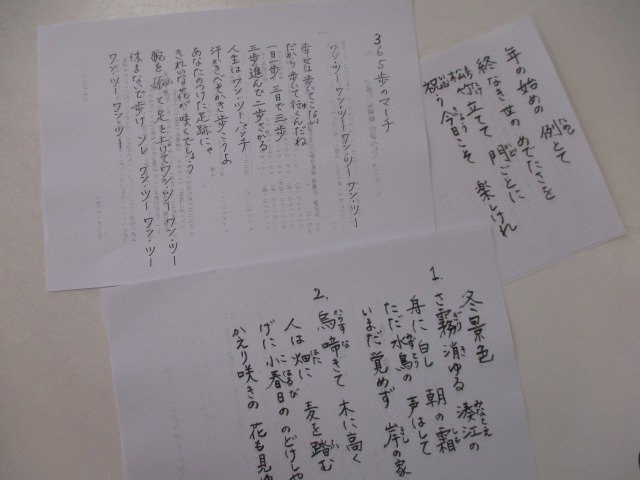 365歩のマーチ
ワン・ツー ワン・ツー ワン・ツー ワン・ツー
幸せは歩いてこない
だから歩いて行くんだね
一日一歩 三日で三歩
三歩進んで二歩さがる
人生は ワン・ツー・パンチ
汗かきべそかき歩こうよ
あなたのつけた足跡にゃ
きれいな花が咲くでしょう
腕を振って足を上げてワン・ツー ワン・ツー
休まないで歩け ソレ ワン・ツー ワン・ツー
ワン・ツー ワン・ツー
年の始めの 例とて
終なき世の めでたさを
松竹立てて 門ごとに
祝う今日こそ 楽しけれ
冬景色
1. さ霧消ゆる 湊江の
舟に白し 朝の霜
ただ水鳥の 声はして
いまだ覚めず 岸の家
2. 烏啼きて 木に高く
人は畑に 麦を踏む
げに小春日の のどけしや
かえり咲きの 花も見ゆ